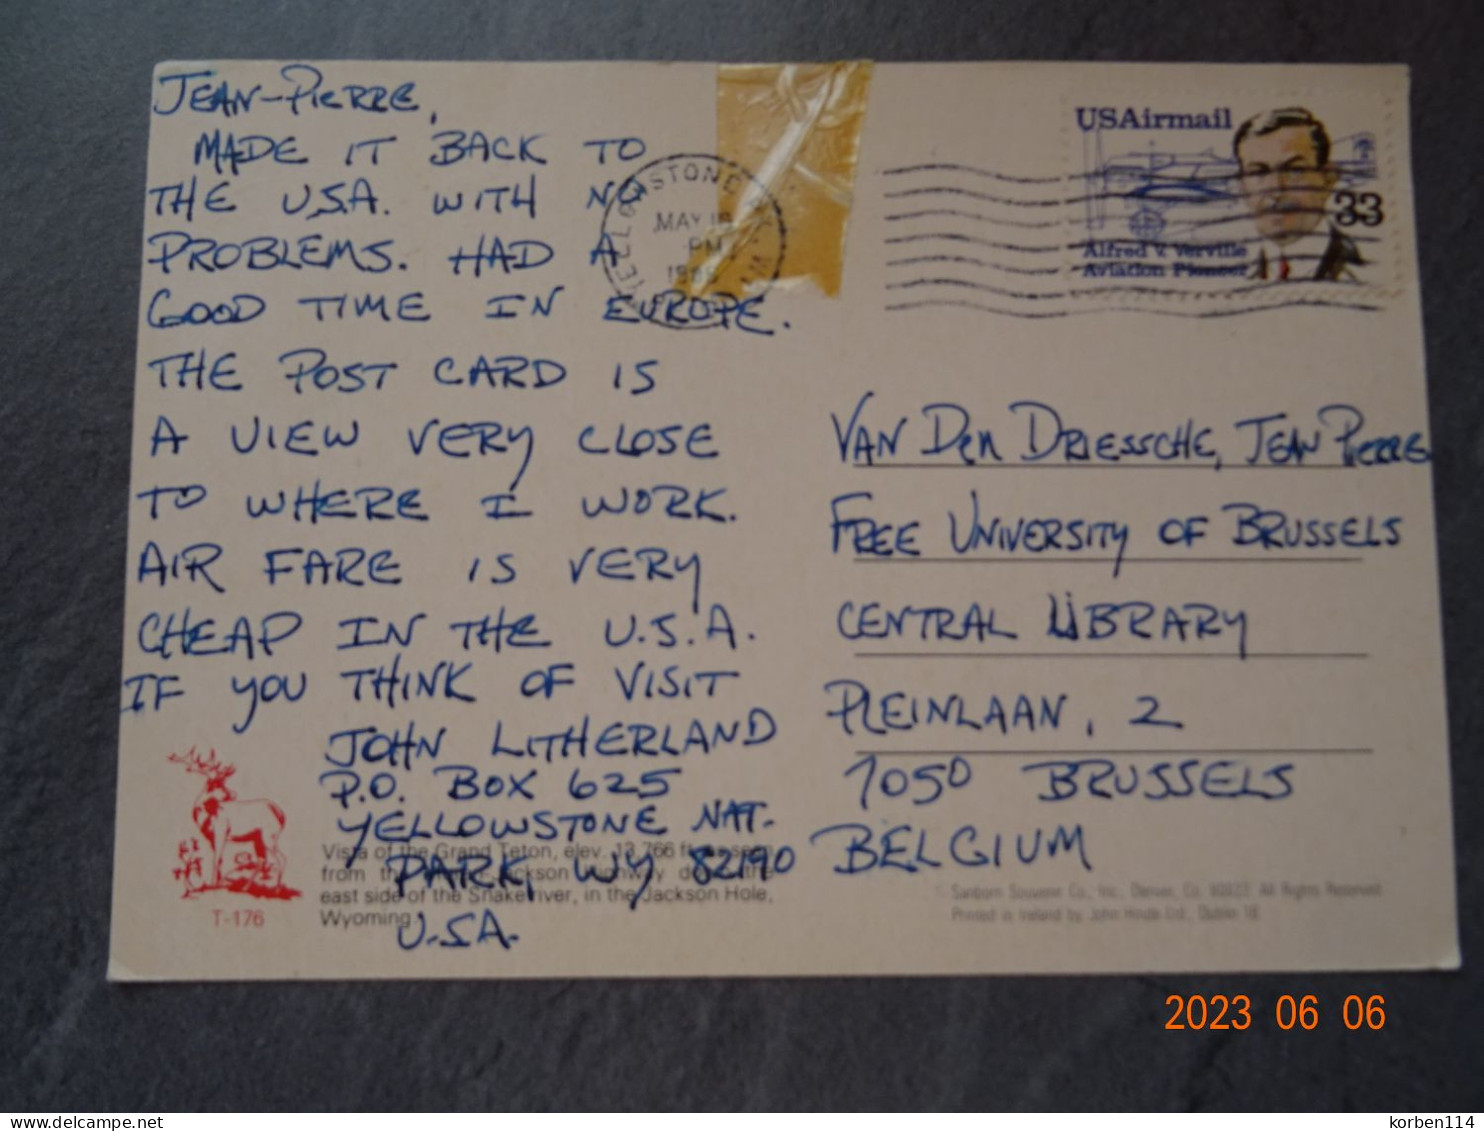 JEAN-PIERRE,
MADE IT BACK TO
THE U.S.A. WITH NO
PROBLEMS. HAD A
GOOD TIME IN EUROPE.
THE POST CARD IS
A VIEW VERY CLOSE
TO WHERE I WORK.
AIR FARE IS VERY
CHEAP IN THE U.S.A.
IF YOU THINK OF VISIT
JOHN LITHERLAND
P.O. BOX 625
YELLOWSTONE NAT.
PARK, WY 82190
U.S.A.
Vista of the Grand Teton, elev. 13,766 ft.
from the Jackson Highway
east side of the Snake river, in the Jackson Hole,
Wyoming
T-176
MAY
PM
USAirmail
33
Alfred V. Verville
Aviation Pioneer
VAN DEN DRIESSCHE, JEAN PIERRE
FREE UNIVERSITY OF BRUSSELS
CENTRAL LIBRARY
PLEINLAAN, 2
1050 BRUSSELS
BELGIUM
Sanborn Souvenir Co., Inc., Denver, Co. 80223. All Rights Reserved
Printed in Ireland by John Hinde Ltd., Dublin 18
2023 06 06
delcampe.net
korben114